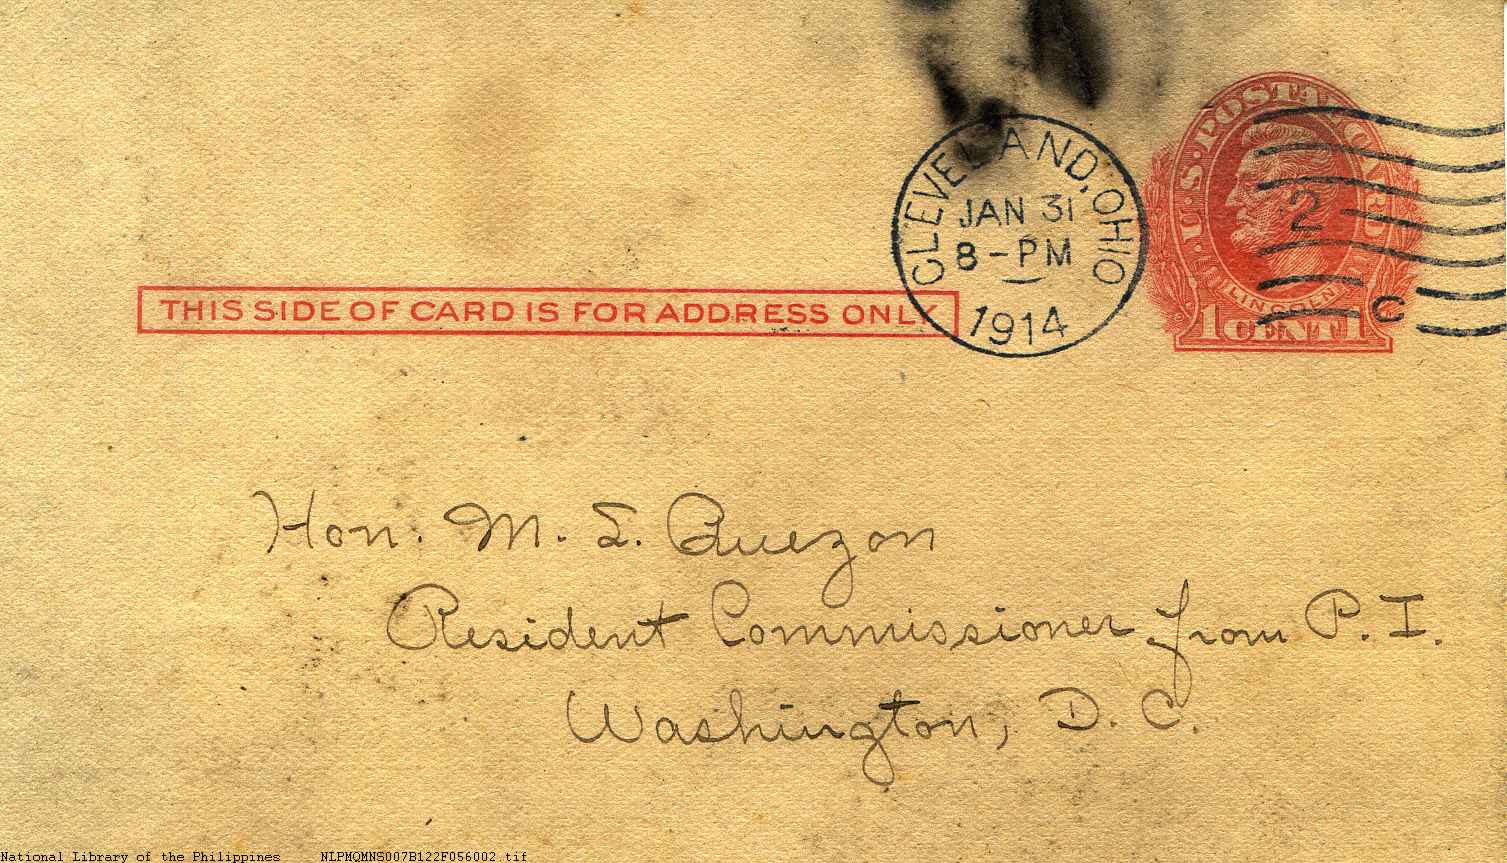 U.S. POSTAL CARD
CLEVELAND, OHIO
JAN 31
8-PM
1914
2
C
LINCOLN
1 CENT 1
THIS SIDE OF CARD IS FOR ADDRESS ONLY
Hon. M. L. Quezon
Resident Commissioner from P. I.
Washington, D. C.
National Library of the Philippines NLPMQMNS007B122F056002.tif